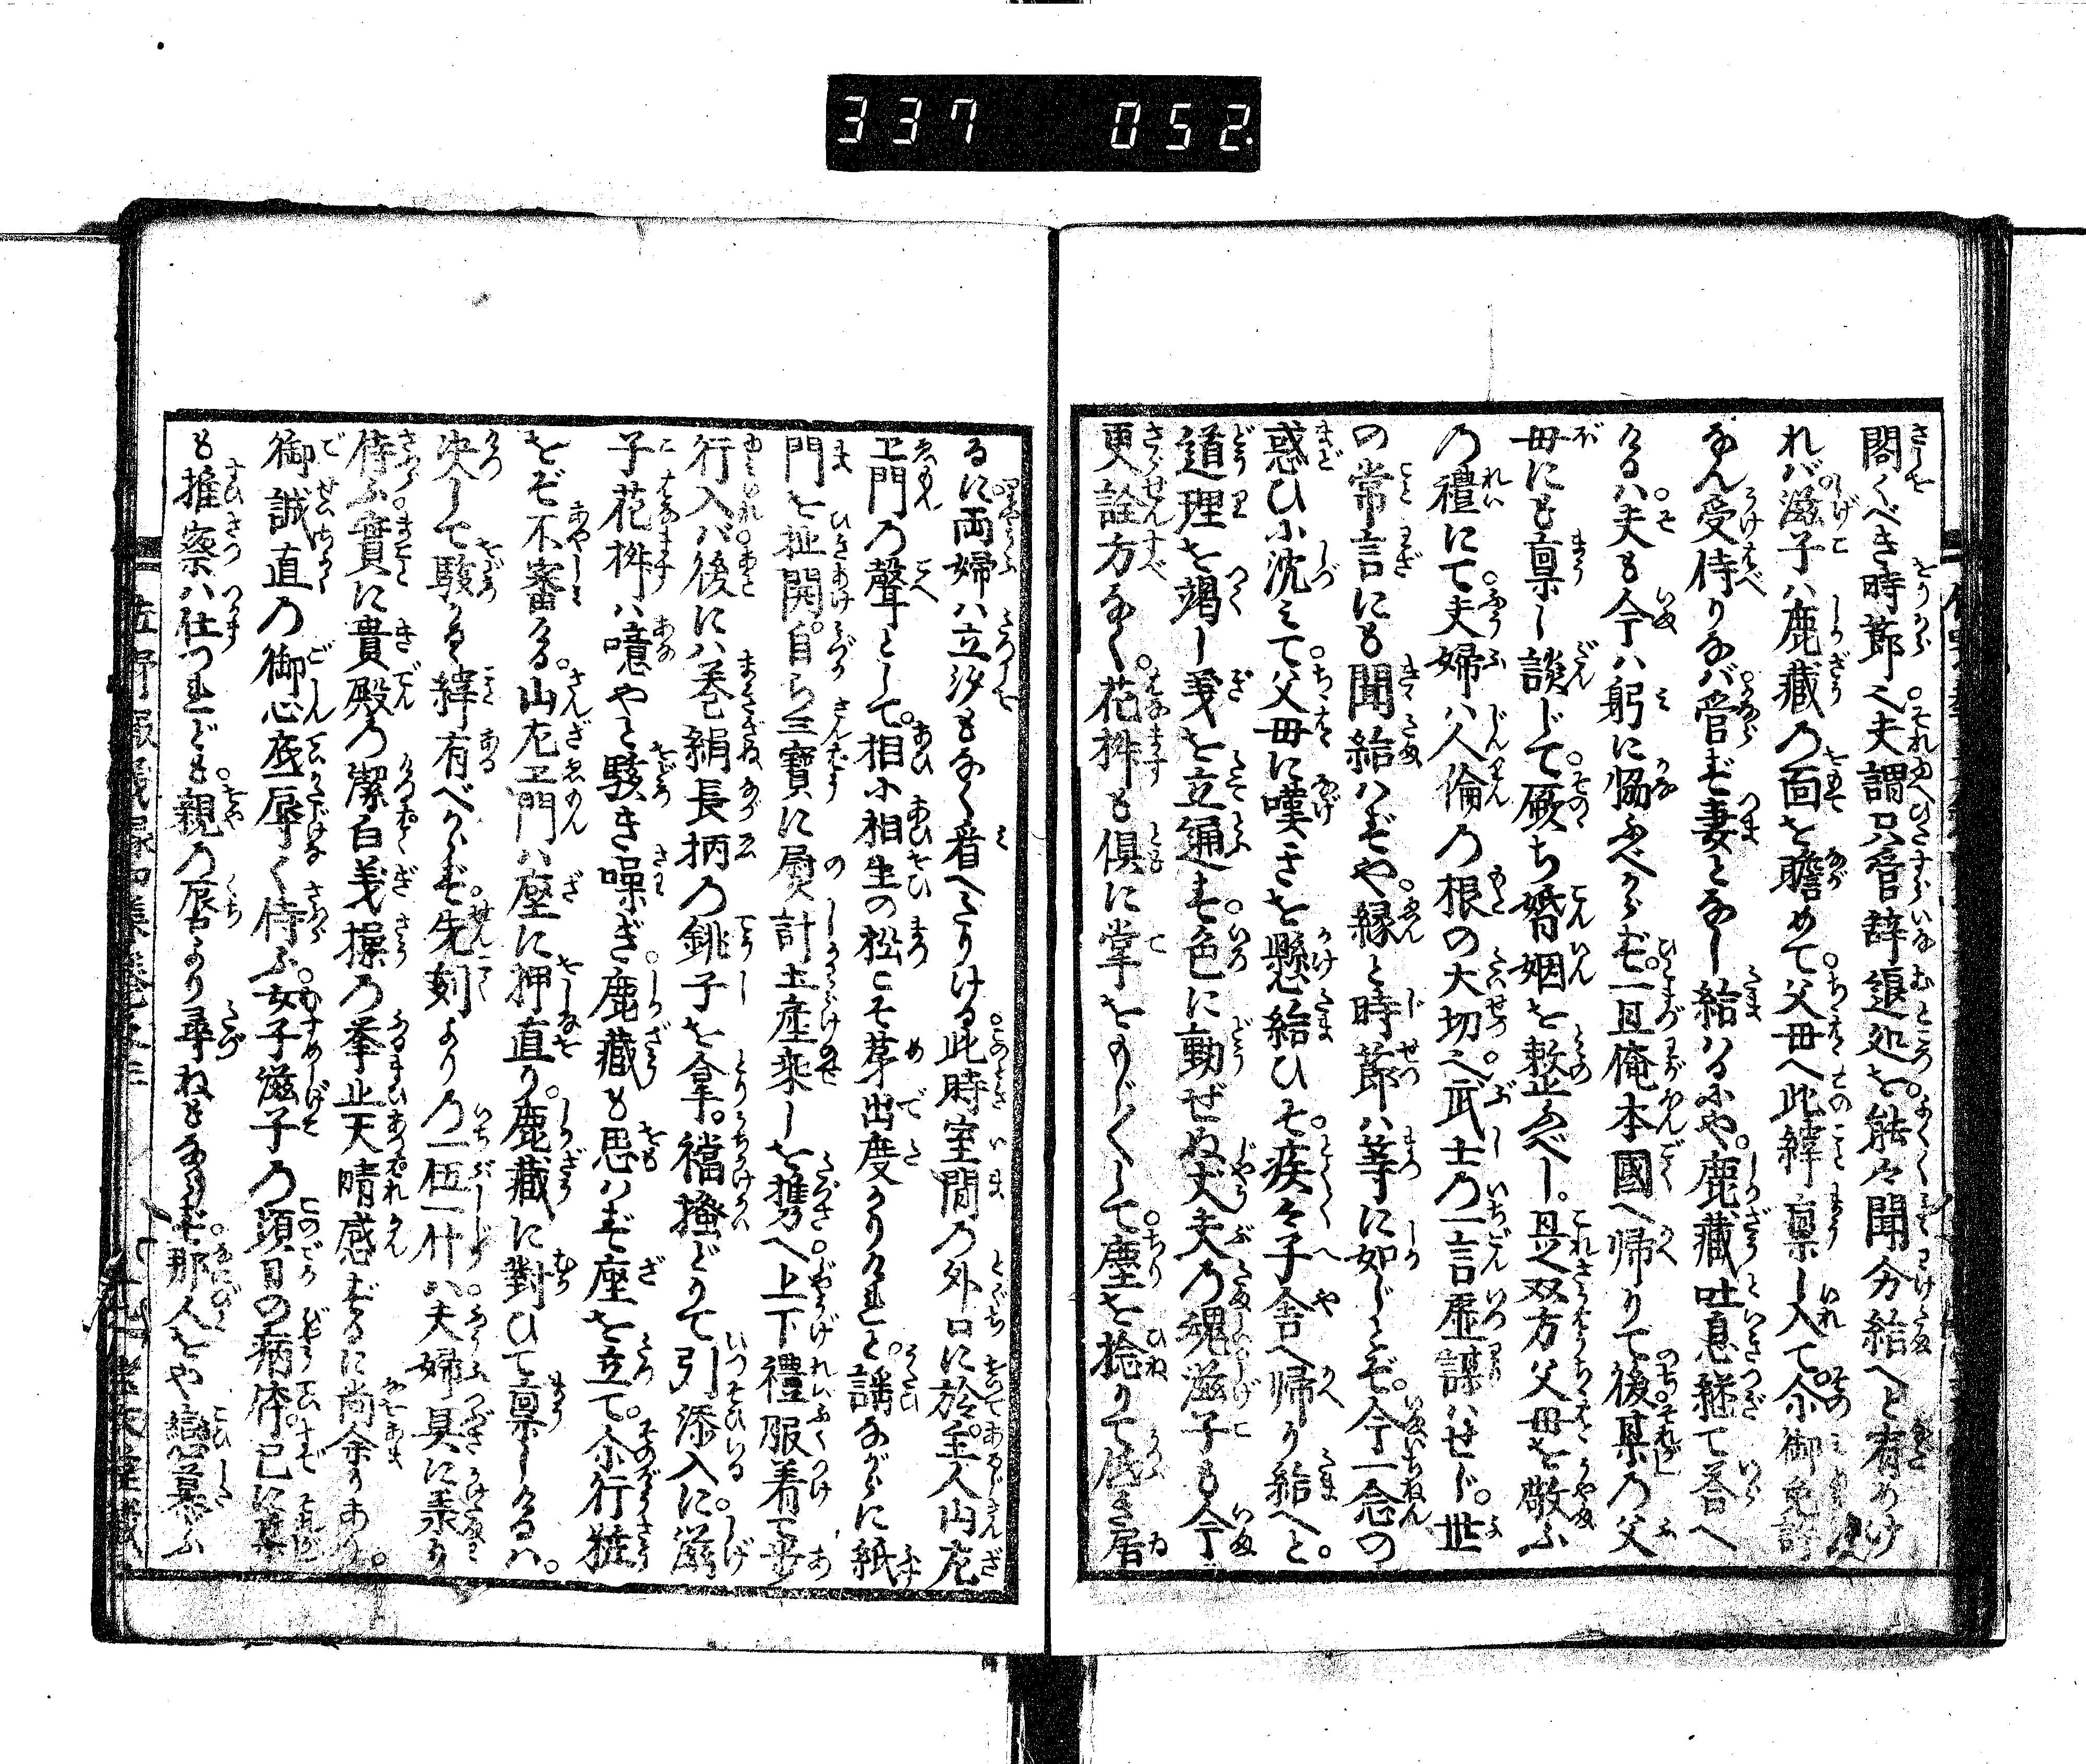 337 052
閣くべき時節へ夫謂只管辞退処を能々聞分給へと宥めけ
れバ滋子ハ鹿藏の面を瞻めて父母へ此緯禀し入て尒御免許
なん受侍りなバ管ず妻となし給はるにや鹿藏吐息継て答へ
けるハ夫も今ハ躬に協ふべからず一旦俺本國へ帰りて後某の父
母にも禀し談じて厥ち婚姻を整ふべし是双方父母を敬ふ
の禮にて夫婦ハ人倫の根の大切之武士の一言虚謀ハせじ世
の常言にも聞給ハずや縁と時節ハ等に如じとぞ今一念の
惑ひに沈みて父母に嘆きを懸給ひそ疾々子舎へ帰り給へと
道理を竭し義を立通す色に動ぜぬ丈夫の魂滋子も今
更詮方なく花桝も倶に掌をもじ〳〵して塵を捻りて低き居
るに両婦ハ立汐もなく看へたりける此時室間の外口に於主人山左
エ門の聲として相に相生の松こそ芽出度かりけれと謡ながらに紙
門を扯開自ら三寳に熨計土産乗しを携へ上下禮服着て
行入バ後にハ巻絹長柄の銚子を拿襠搔どりて引添入に滋
子花桝ハ噫やと駭き噪ぎ鹿藏も思ハず座を立て尒行粧
をぞ不審ける山左エ門ハ座に押直り鹿藏に對ひて禀しけるハ
决して駭かるゝ緯有べからず先刻よりの一伍一什ハ夫婦具に承り
侍ふ實に貴殿の潔白義操の挙止天晴感ずるに尚余りあり
御誠直の御心底辱く侍ふ女子滋子の頃日の病体已に某
も推察ハ仕つれども親の唇より尋ねもならず那人をや戀慕ふ